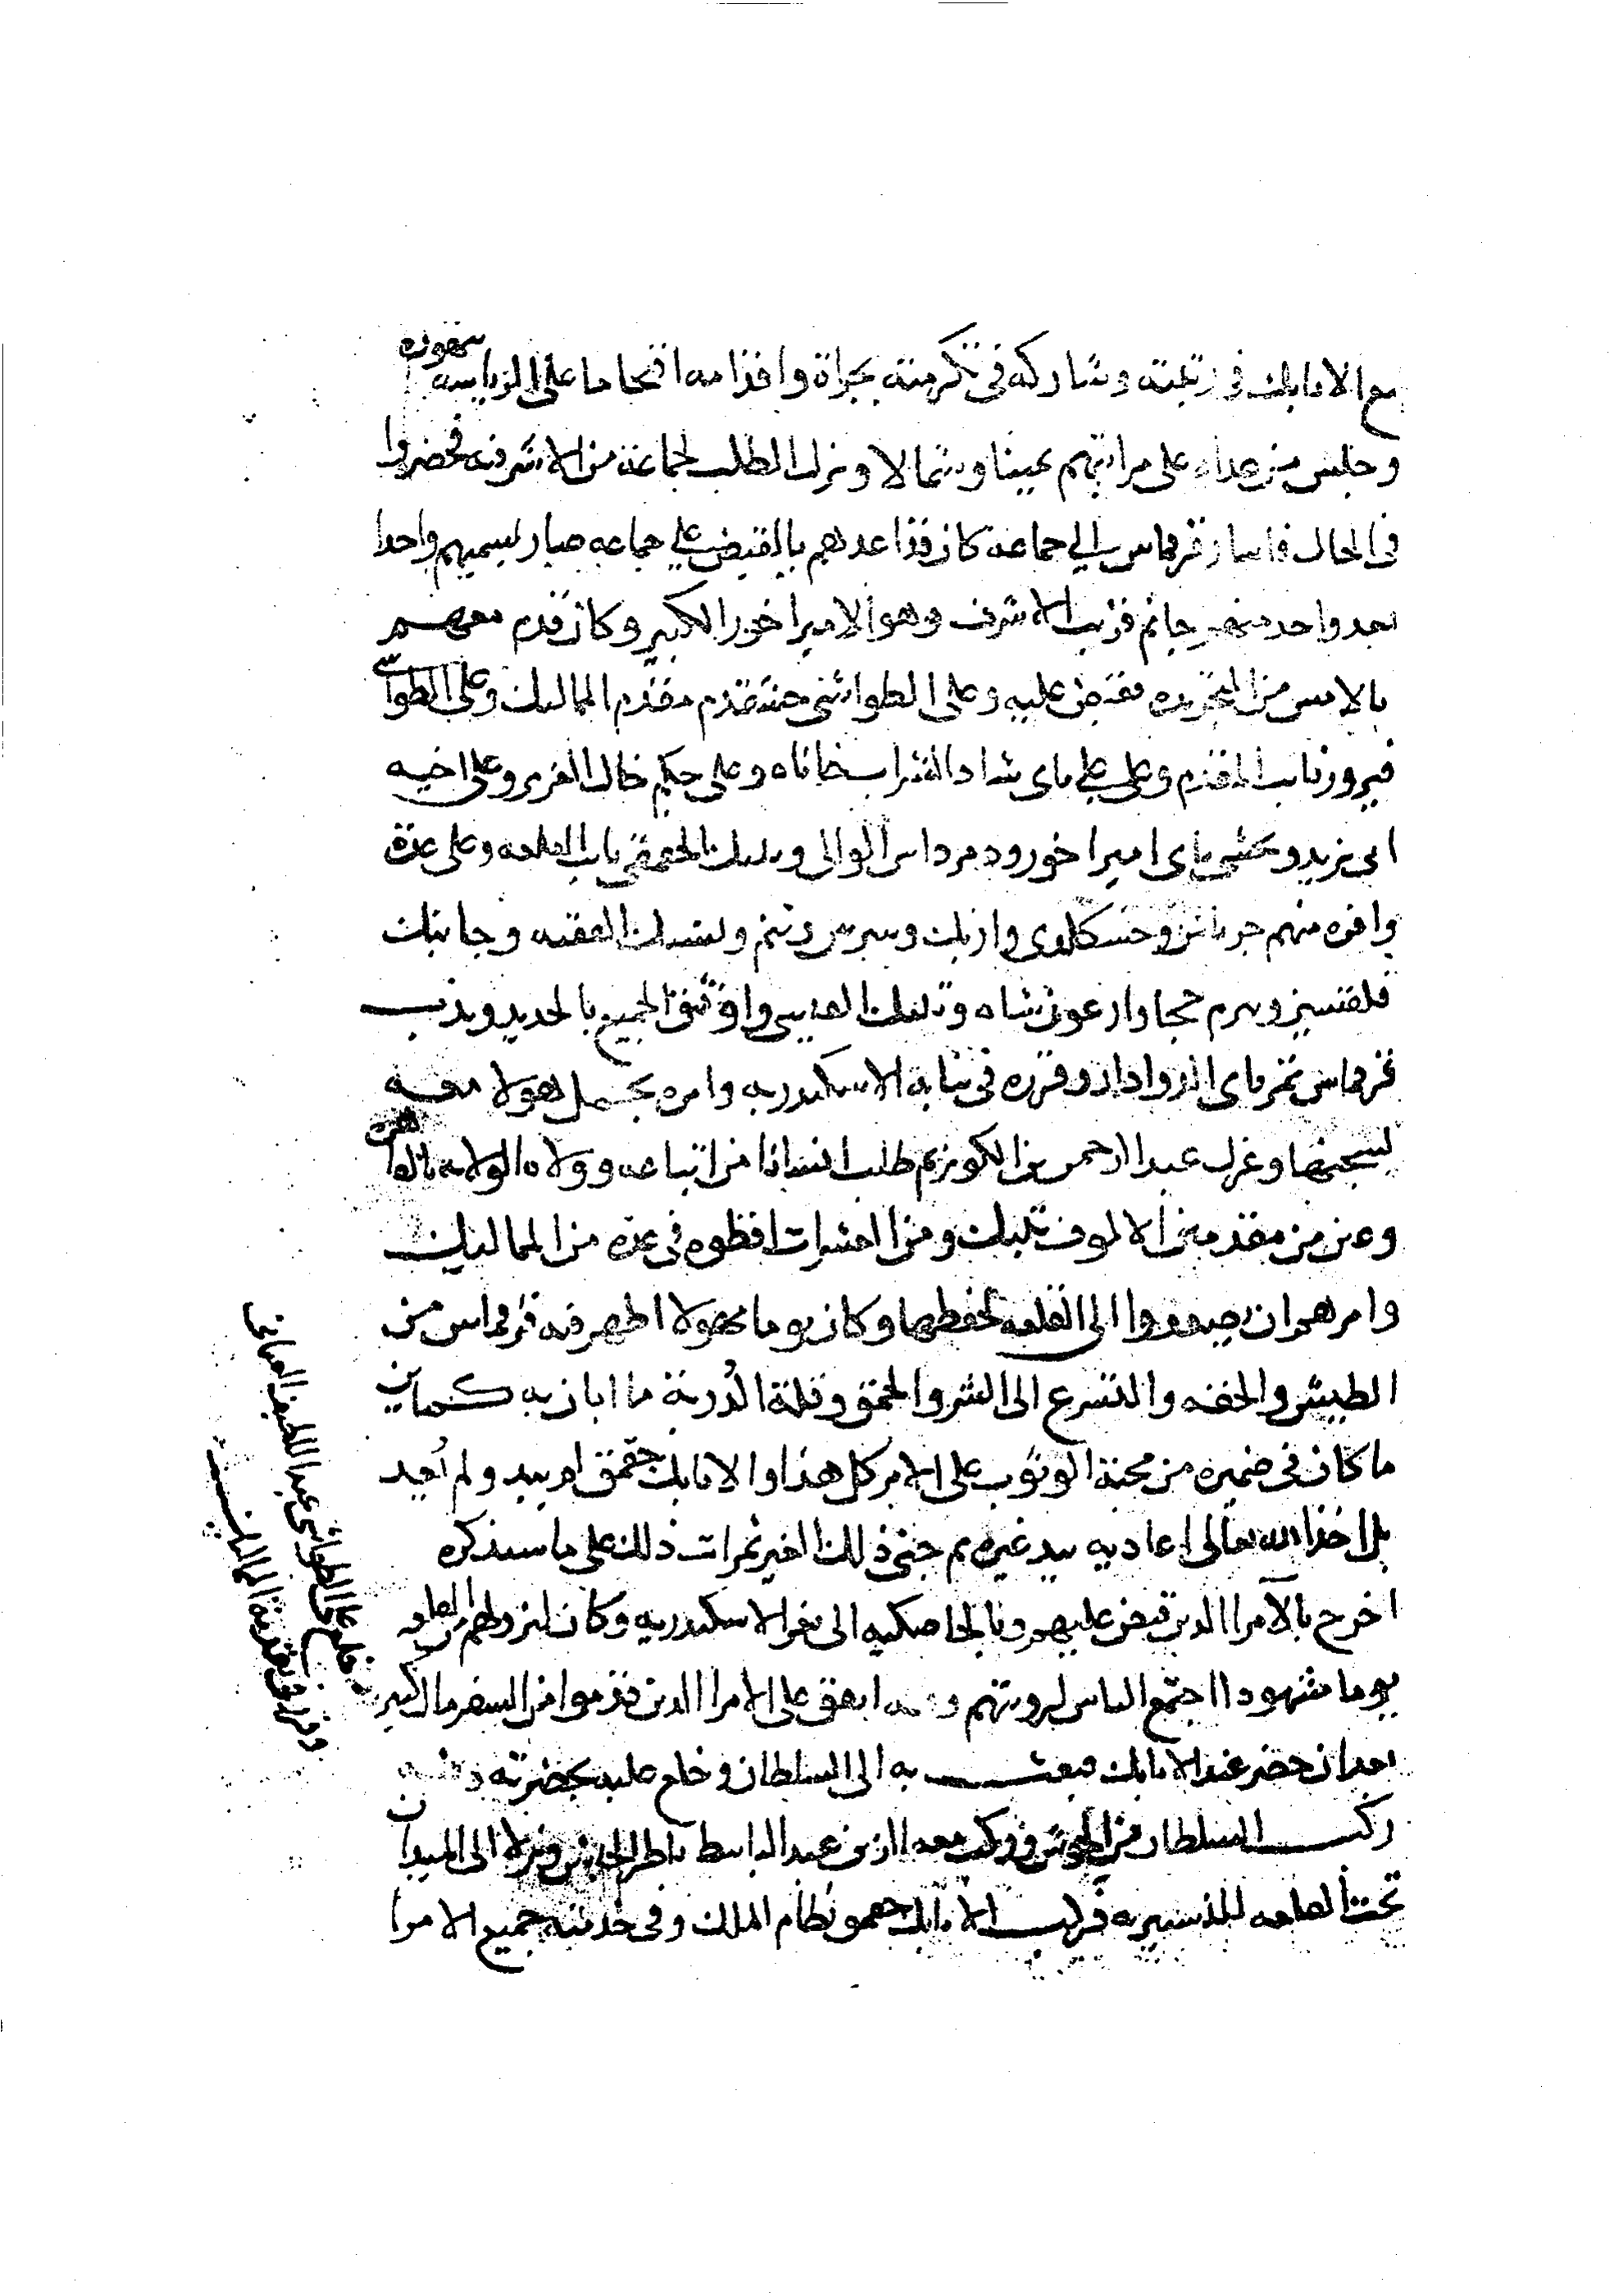 مع الاتابك في رتبته وشاركه في تكرمته بجراة واقدامه اقتحاما على الرياسه بتهوره
وجلس من عداه على مراتبهم يمينا وشمالا ونزل الطلب لجماعة من الاشرفيه فحضروا
في الحال فاشار قرقماس الي جماعة كان قد اعدهم بالقبض علي جماعه صار يسميهم واحدا
بعد واحد منهم جانم قريب الاشرف وهو الامير اخور الكبير وكان قدم معهم
بالامس من التجريده فقبض عليه وعلى الطواشي خشقدم مقدم المماليك وعلى الطواشي
فيروز نايب المقدم وعلى علي باي شاد الشراب خاناه وعلى جكم خال العزيز وعلى اخيه
ابي يزيد ويخشى باي امير اخور ودمرداس الوالى وتنبك الجقمقي نايب القلعه وعلى عدة
وافره منهم جرباش وخشكلدي وازبك وبيبرس وتنم ويشبك الفقيه وجانبك
قلقسيز وبيرم خجا وارغون شاه وتنبك واوثقوا الجميع بالحديد وندب
قرقماس تمرباي الدوادار وقرره في نيابة الاسكندريه وامره بحمل هولا معه
ليسجنهم بها وعزل عبد الرحمن بن الكويز ثم طلب انسانا من اتباعه وولاه الولايه بالقاهره
وعين من مقدمين الالوف تنبك ومن العشرات اقطوه في عده من المماليك
وامرهم ان يصعدوا الى القلعه لحفظها وكان يوما مهولا اظهر فيه قرقماس من
الطيش والخفه والتسرع الى الشر والحمق وقلة الدربة ما ابان به كماين
ما كان في ضميره من محبة الوثوب على الامر كل هذا والاتابك جقمق لم يبد ولم يعد
بل اخذ الله تعالى اعاديه بيد غيره ثم جنى ذلك الغير ثمرات ذلك على ما سيذكره
اخرج بالامرا الدين قبض عليهم وبالخاصكيه الى ثغر الاسكندريه وكان لنزولهم من القلعه
يوما مشهودا اجتمع الناس لرويتهم وفيه انفق على الامرا الدين قدموا من السفر مال كبير
بعد ان حضر عند الاتابك فبعث به الى السلطان وخلع عليه بحضرته وفيه
ركب السلطان من الحوش وركب معه الزين عبد الباسط ناظر الجيش ونزلا الى الميدان
تحت القلعه للتسيير به فركب الاتابك جقمق نظام الملك وفي خدمته جميع الامرا
خلع على الطواشي عبد اللطيف العثماني
وقرر في تقدمة المماليك